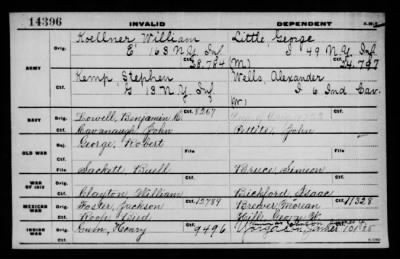 14396 INVALID DEPENDENT
ARMY
Orig. Koellner William Little, George
E 163 N.Y. Inf I 49 N.Y. Inf
Ctf. 28,784 (M.) 24,797
Orig. Kemp, Stephen Wells, Alexander
G 13 N.Y. Inf I 6 Ind Cav.
Ctf.
NAVY
Orig. Lowell, Benjamin C. 8267
Ctf. Cavanaugh John Pettit, John
OLD WAR
George, Robert
File File
Sackett Buell Bruce, Simeon
WAR OF 1812
Orig.
Ctf. Clayton William Bickford Isaac
MEXICAN WAR
Orig. Foster, Jackson 13789 Brewer, 11328
Ctf. Hill, George W.
INDIAN WAR
Orig. Henry 9496
Ctf.